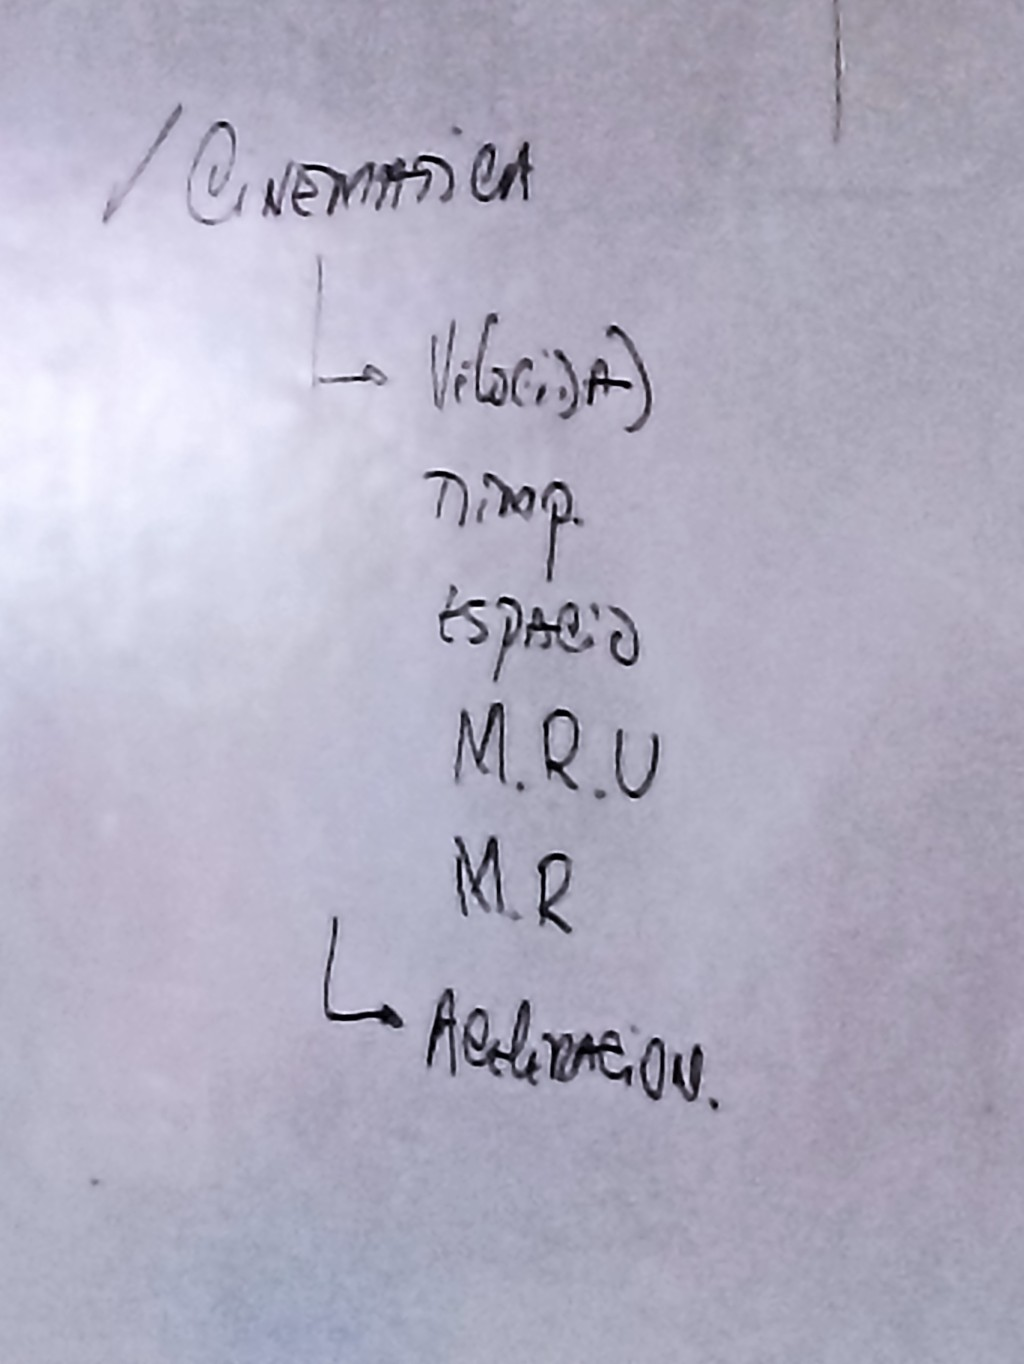 / CINEMATICA
↳ VelociDAD
Tiemp.
ESPACIO
M.R.U
M.R
↳ AceleRACION.